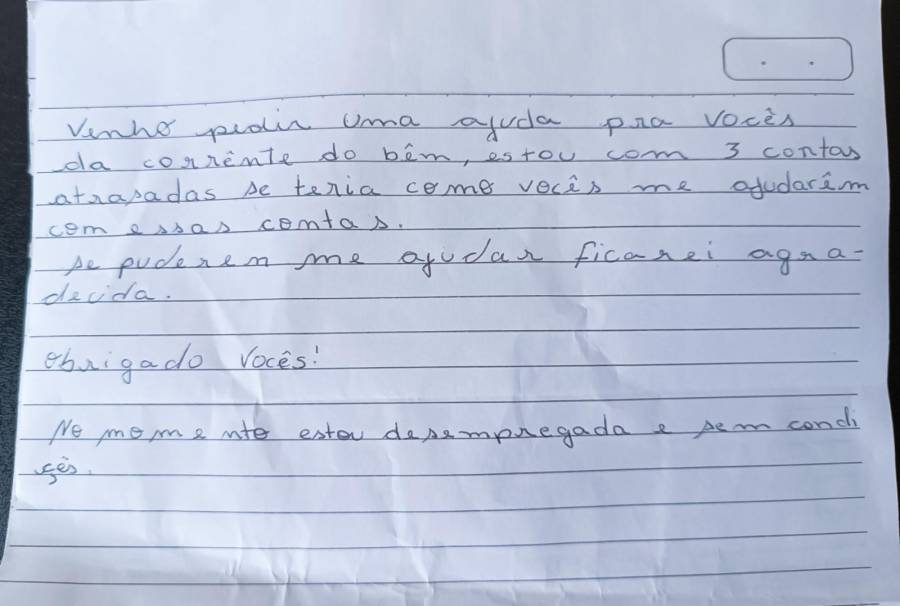 Venho pedir uma ajuda pra vocês
da corrênte do bêm, estou com 3 contas
atrasadas se teria como vocês me ajudarêm
com essas contas.
se puderem me ajudar ficarei agra-
decida.
obrigado vocês!
No momento estou desempregada e sem condi
çês.